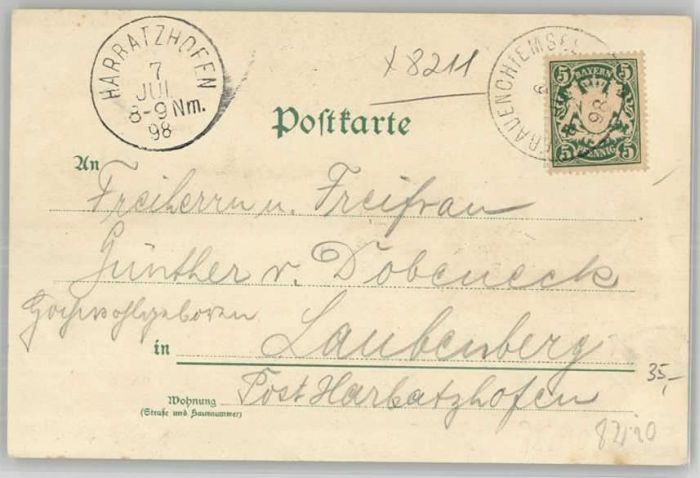 HARRATZHOFEN
7
JUL
8-9 Nm.
98
x 8211
FRAUENCHIEMSEE
98
5 BAYERN 5
5 PFENNIG 5
Postkarte
An
Freiherrn u. Freifrau
Günther v. Dobeneck
Hochwohlgeboren
in Laubenberg
35,-
Wohnung Post Harbatzhofen
(Straße und Hausnummer)